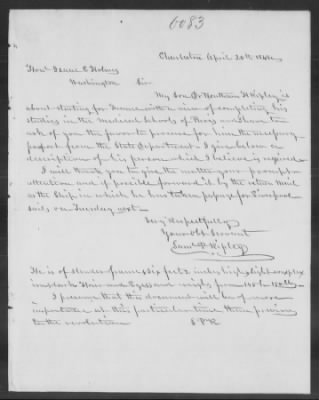 6083
Charleston April 20th 1848
Hon. Isaac E Holmes
Washington Sir
My Son Dr Northrum H Ripley is
about starting for France with a view of completing his
studies in the Medical Schools of Paris and I have to
ask of you the favor to procure for him the necessary
passport from the State Department I give below a
description of his person which I believe is required
I will thank you to give the matter your prompt
attention and if possible forward it by the return Mail
as the Ship in which he has taken passage for Liverpool
sails on Tuesday next.
Very Respectfully
Your Obt Servant
Saml P Ripley
He is of slender frame six feet 2 inches high, light complex
ion dark Hair and Eyes and weighs from 145 to 150 lbs
I presume that this document will be of more
importance at this particular time than previous
to the revolution S P R